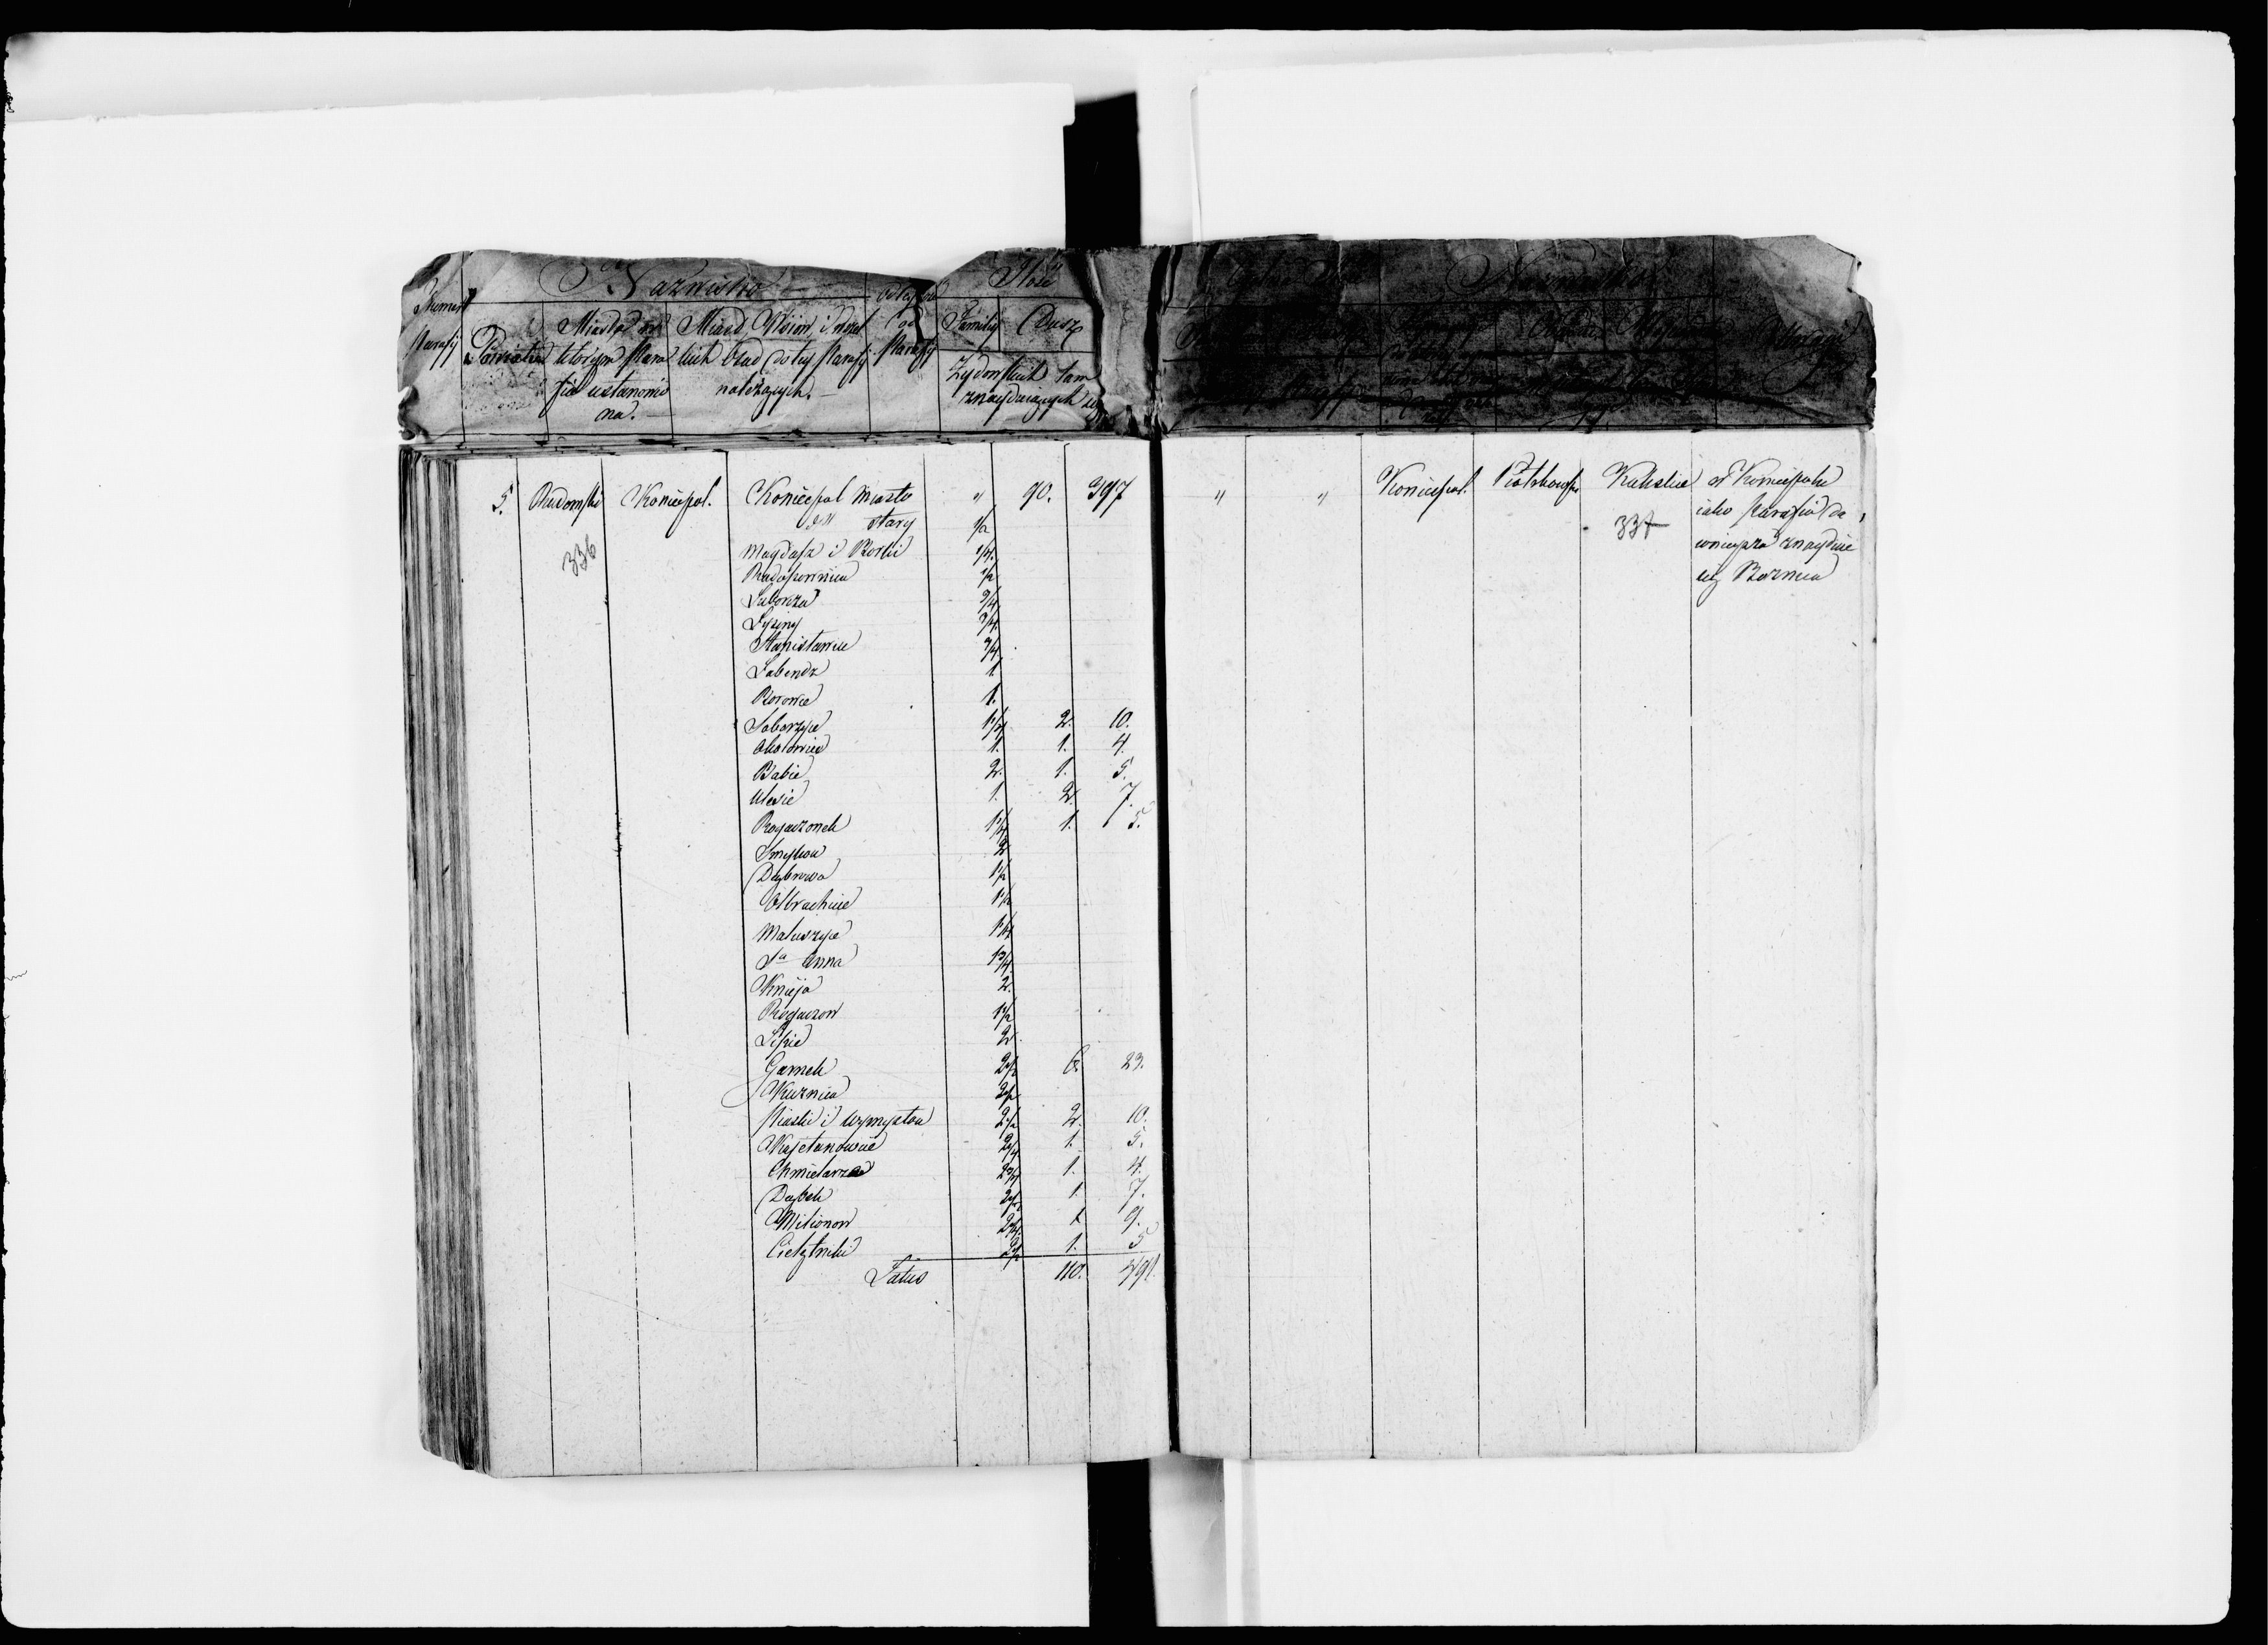 Numer Parafij
Nazwisko
Powiatu
Miasta w którym Parafia ustanowiona.
Miast, Wsiów, i wszelkich Osad do tey Parafij należących.
Odległość od Parafij
Ilość
Familij
Dusz
Żydowskich tam znayduiących się
Nazwisko
Uwagi
5. Radomski Koniecpol. Koniecpol Miasto " 90. 397 " " Koniecpol. Piotrkowski Kaliskie w Koniecpolu
336
337
iako Parafia da
wnieysza znayduie
się Bożnica
dtt stary 1/2
Magdasz i Borki 1/4.
Radoszewnica 1/2
Luborza 3/4
Łysiny 3/4.
Stanisławice 3/4
Łabendz 1
Borowce 1.
Soborzyce 1 1/2 2. 10.
Okołowice 1. 1. 4.
Babie 2. 1. 5.
Ulesie 1. 2. 7.
Rogaczonek 1 1/4 1. 5.
Smyków 2
Dąbrowa 1 1/2
Olbrachcice 1 1/2
Maluszyce 1 1/4
Sa Anna 1 3/4.
Knieja 2.
Rogaczow 1 1/2
Lipie 2
Garnek 2 1/2 6. 23.
Kuznica 2 1/2
Piaski i Wymysłow 2 1/2 2. 10.
Kajetanowice 2 1/4 1. 5.
Chmielarze 2 3/4 1. 4.
Dąbek 2 1/2 1. 7.
Milionow 2 1/4. 1. 9.
Cielętniki 2 1/2 1. 5
Latus 110. 491.